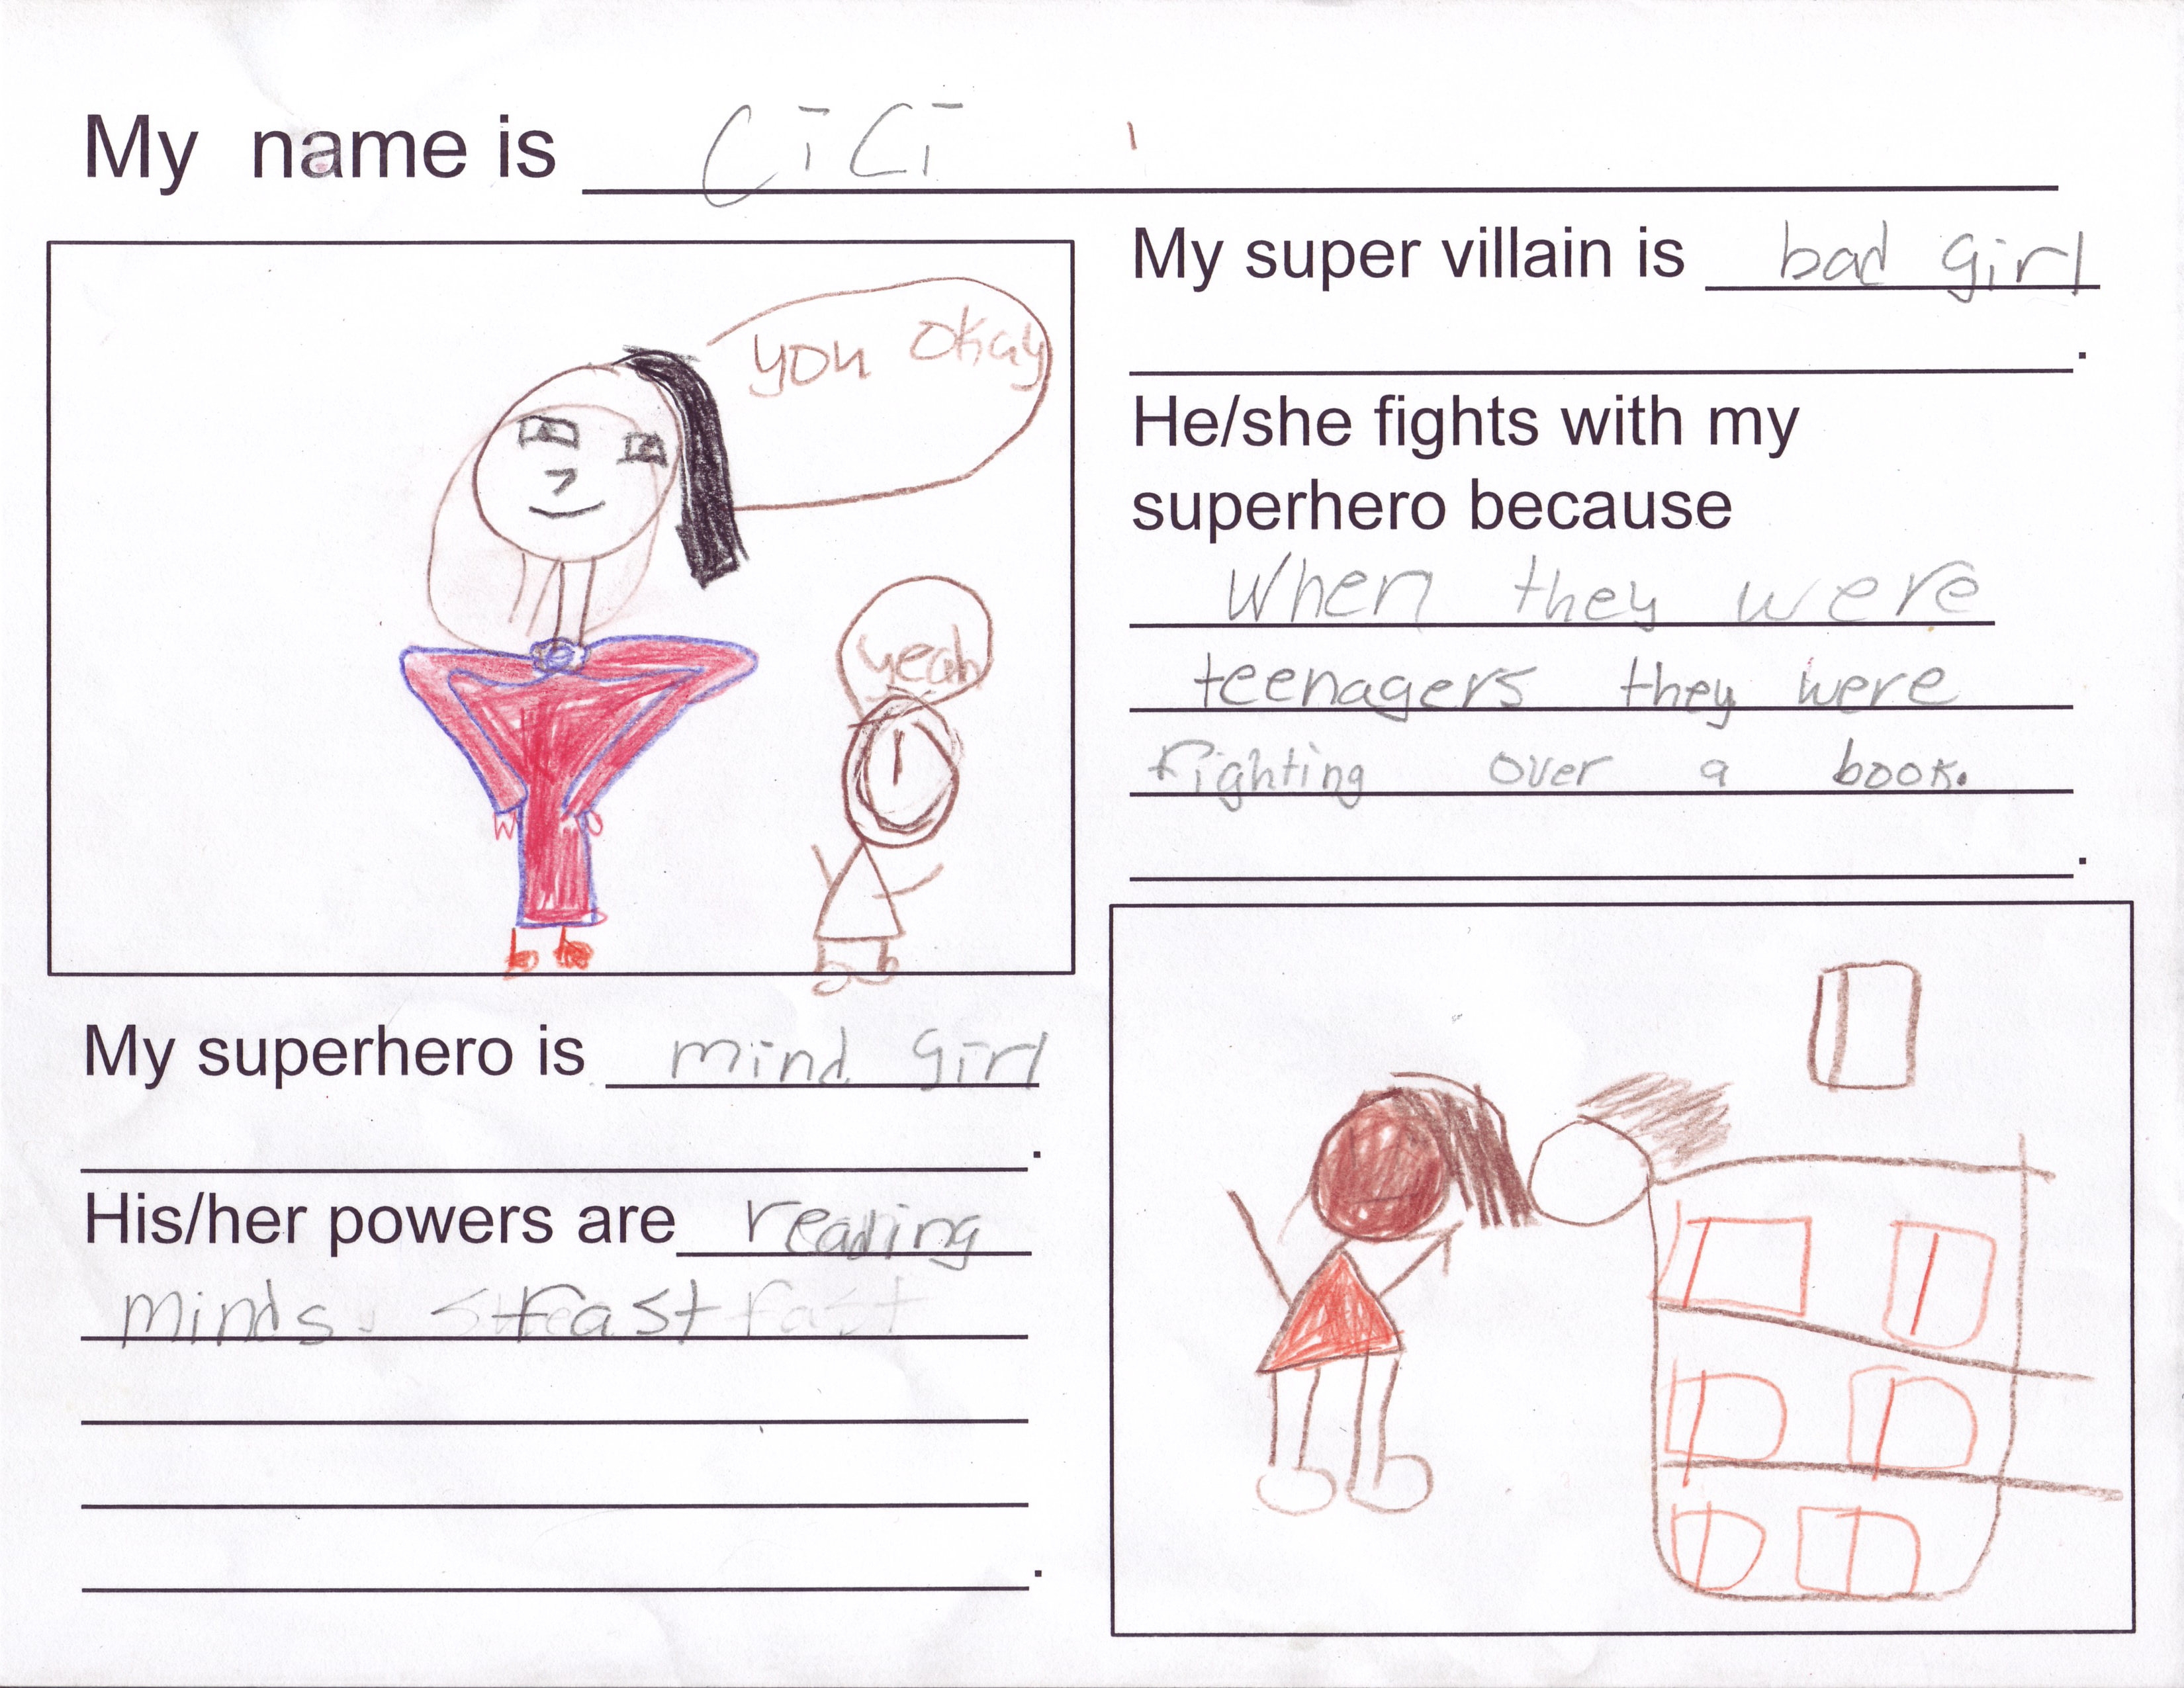 My name is CiCi
you okay
yeah
My superhero is mind girl
.
His/her powers are reading
minds. fast fast
.
My super villain is bad girl
.
He/she fights with my
superhero because
When they were
teenagers they were
fighting over a book.
.